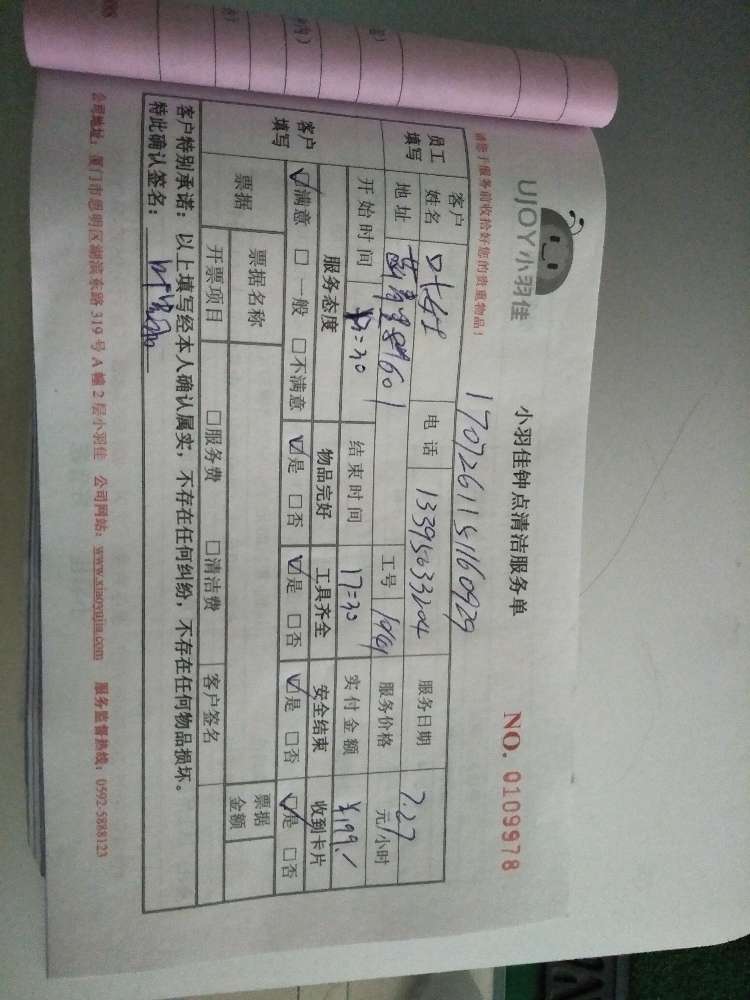 UJOY小羽佳
小羽佳钟点清洁服务单
NO. 0109978
请您于服务前收拾好您的贵重物品!
170726115160929
员工填写 客户姓名 叶女士 电话 13395033204 服务日期 7.27
地址 601 工号 1961 服务价格 元/小时
开始时间 :30 结束时间 17:30 实付金额 ¥199./
客户填写 服务态度 物品完好 工具齐全 安全结束 收到卡片
☑满意 □一般 □不满意 ☑是 □否 ☑是 □否 ☑是 □否 ☑是 □否
票据 票据名称 票据金额
开票项目 □服务费 □清洁费 客户签名
客户特别承诺:以上填写经本人确认属实,不存在任何纠纷,不存在任何物品损坏。
特此确认签名:
公司地址:厦门市思明区湖滨东路319号A幢2层小羽佳 公司网站:www.xiaoyujia.com 服务监督热线:0592-5888123